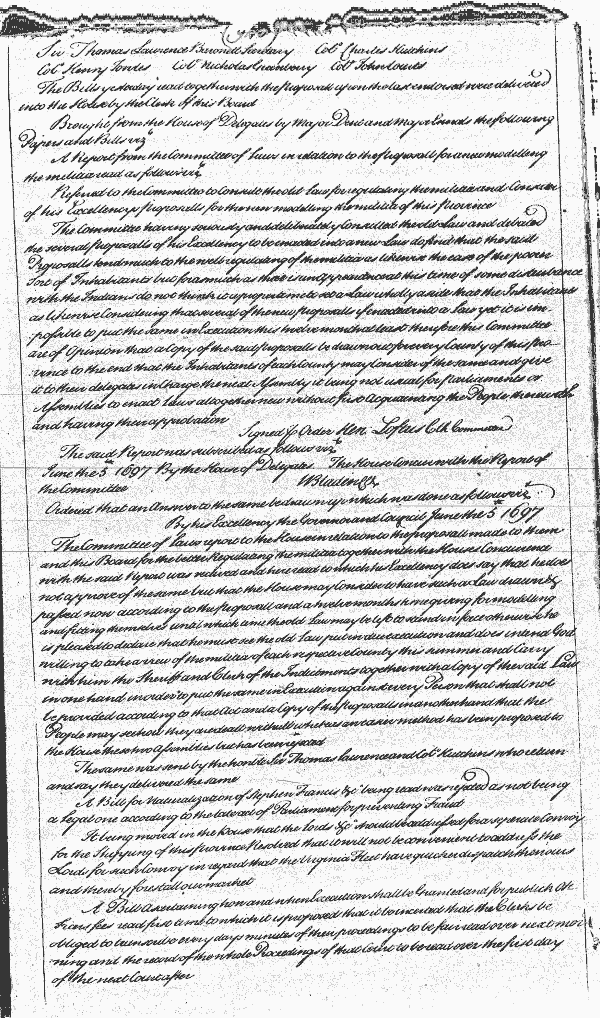 Sir Thomas Lawrence Baronett Secretary Col.º Charles Hutchins
Col.º Henry Jowles Col.º Nicholas Greenberry Col.º John Courts
The Bills yesterday read together with the proposall upon the last endorsed were delivered
into the House by the Clerk of this Board
Brought from the House of Delegates by Major Dent and Major Ennals the following
Papers and Bills viz.t
A Report from the Committee of Laws in relation to the proposall for a new modelling
the militia read as follows viz.t
Referred to the Committee to Consult the old Law for regulating the militia and Consider
of his Excellencys proposalls for the new modelling the militia of this province
The Committee having seriously and deliberately Consulted the old Law and debated
the severall proposalls of his Excellency to be inacted into a new Law do find that the said
Proposalls tend much to the well regulating of the militia as likewise the ease of the poorer
sort of Inhabitants but forasmuch as there is an appearance at this time of some disturbance
with the Indians do not think it a proper time to set a Law wholly aside that the Inhabitants
as likewise Considering that severall of the new proposalls if enacted into a Law yet it is im-
possible to put the same in Execution this twelve month at least therefore this Committee
are of Opinion that a Copy of the said proposalls be drawn out for every County of this pro-
vince to the end that the Inhabitants of each County may Consider of the same and give
it to their delegates in Charge the next Assembly it being not usuall for parliaments or
Assemblies to enact Laws altogether new without first Acquainting the People therewith
and having their approbation
Signed p Order Hen: Loftus Clk Committee
The said Report was subscribed as follows viz.t
June the 5.th 1697 By the House of Delegates The House Concur with the Report of
the Committee
W Bladen Clk
Ordered that an Answer to the same be drawn up which was done as follows viz.t
By his Excellency the Governor and Council June the 5.th 1697
The Committee of Laws report to the House in relation to the proposalls made to them
and this Board for the better Regulating the militia together with the House Concurrence
with the said Report was recieved and here read to which his Excellency does say that he does
not approve of the same but that the House may Consider to have such a Law drawn &
passed now according to the proposall and a twelve months time giving for modeling
and fitting themselves until which time the old Law may be left to stand in force otherwise he
is pleased to declare that he must see the old Law put in due execution and does intend God
willing to take a view of the militia of each respective County this summer and Carry
with him the Sheriff and Clerk of the Indictments together with a Copy of the said Law
in one hand in order to put the same in Execution against every Person that shall not
be provided according to that Act and a Copy of the proposalls in another hand that the
People may see how they are dealt withall whereas an easier method has been proposed to
the House these two Assemblies but has been rejected
The same was sent by the honble Sir Thomas Lawrence and Col.º Hutchens who return
and say they delivered the same
A Bill for Naturalization of Stephen Francis &c.a being read was rejected as not being
a legal one according to the late act of Parliament for preventing Frauds
It being moved in the house that the Lords &c.a should be addressed for a speedie Convoy
for the Shipping of this province Resolved that it will not be convenient to address the
Lords for such Convoy in regard that the Virginia Fleet have quicker dispatch then ours
and thereby forestall our market
A Bill ascertaining how and when Execution shall be Granted and for publick Of-
ficers fees read first time to which it is proposed that it be inserted that the Clerks be
obliged to transcribe every days minutes of their proceedings to be fair read over next mor-
ning and the record of the whole Proceedings of that Court to be read over the first day
of the next Court after